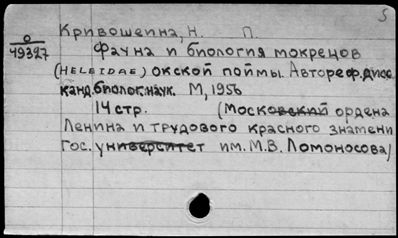 5
Кривошеина, Н. П.
О
49327
Фауна и биология мокрецов
(HELEIDAE) окской поймы. Автореф.дисс.
канд.биолог.наук. М, 1956
14 стр. (Московский ордена
Ленина и трудового красного знамени
Гос. университет им. М.В. Ломоносова)